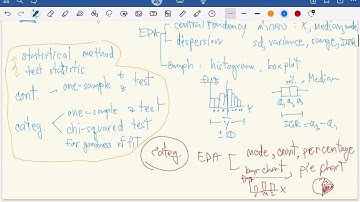 EDA central tendency mean: x̄, median, mode
dispersion sd, variance, range, IQR
Graph: histogram, boxplot
statistical method
test statistic
cont. one-sample t test
categ one-sample z test
chi-squared test
for goodness of fit
Median
Q₁ Q₂ Q₃
Y
IQR = Q₃ - Q₁
categ. EDA mode, cont, percentage
bar chart, pie chart
X